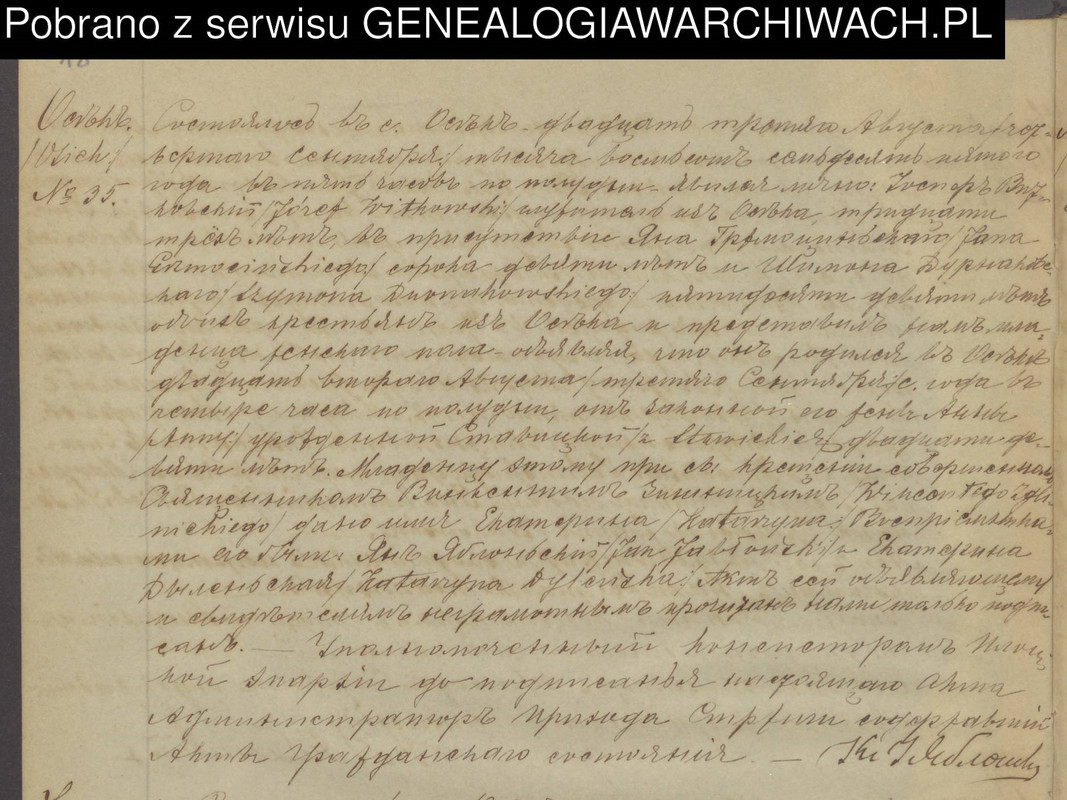 Pobrano z serwisu GENEALOGIAWARCHIWACH.PL
Осѣкъ.
/Osiek/
№ 35.
Состоялось въ с. Осѣкъ двадцать третьяго Августа /чет-
вертаго Сентября/ тысяча восемьсотъ семьдесятъ пятого
года въ пять часовъ по полудни. Явился лично: Іосифъ Вит-
ковскій /Józef Witkowski/ изъ Осѣка, тридцати
трехъ лѣтъ, въ присутствіи Яна /Jana
сорока девяти лѣтъ и Шимона
/Szymona пятидесяти девяти лѣтъ
обоихъ крестьянъ изъ Осѣка и представилъ намъ мла-
денца женскаго пола объявляя, что онъ родился въ Осѣкѣ
двадцать втораго Августа /третяго Сентября/ с. года въ
четыре часа по полудни, отъ законной его жены Анны
/Anny/ урожденной Ставицкой /z Stawickich/ двадцати де-
вяти лѣтъ. Младенцу этому при св: крещеніи совершенномъ
Священникомъ /Wincentego
дано имя Екатерина /Katarzyna/, Воспріемника-
ми его были: Янъ Яблоньскій /Jan Jabłoński/ и Екатерина
/Katarzyna Актъ сей объявляющему
и свидѣтелямъ неграмотнымъ прочитанъ нами только подпи-
санъ. — Уполномоченный
кой Епархіи до подписанья настоящаго Акта
Администраторъ Прихода содержавшій
Акты гражданскаго состоянія. —